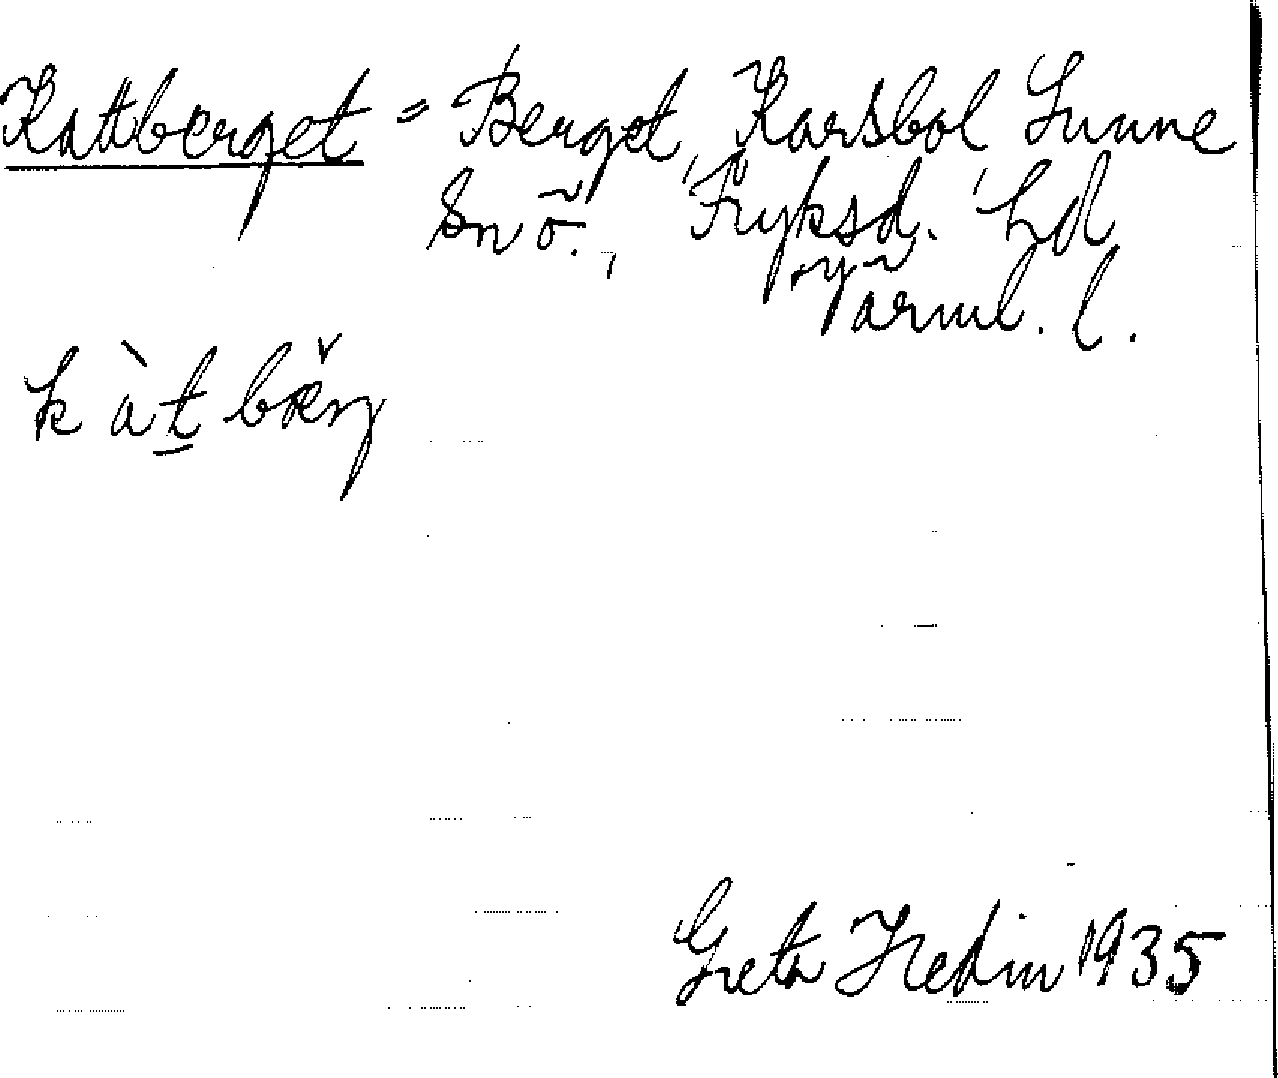 Kattberget = Berget, Karsbol Sunne
sn ö., Fryksd. hd
Värml. l.
k à t bærg
Greta Hedin 1935